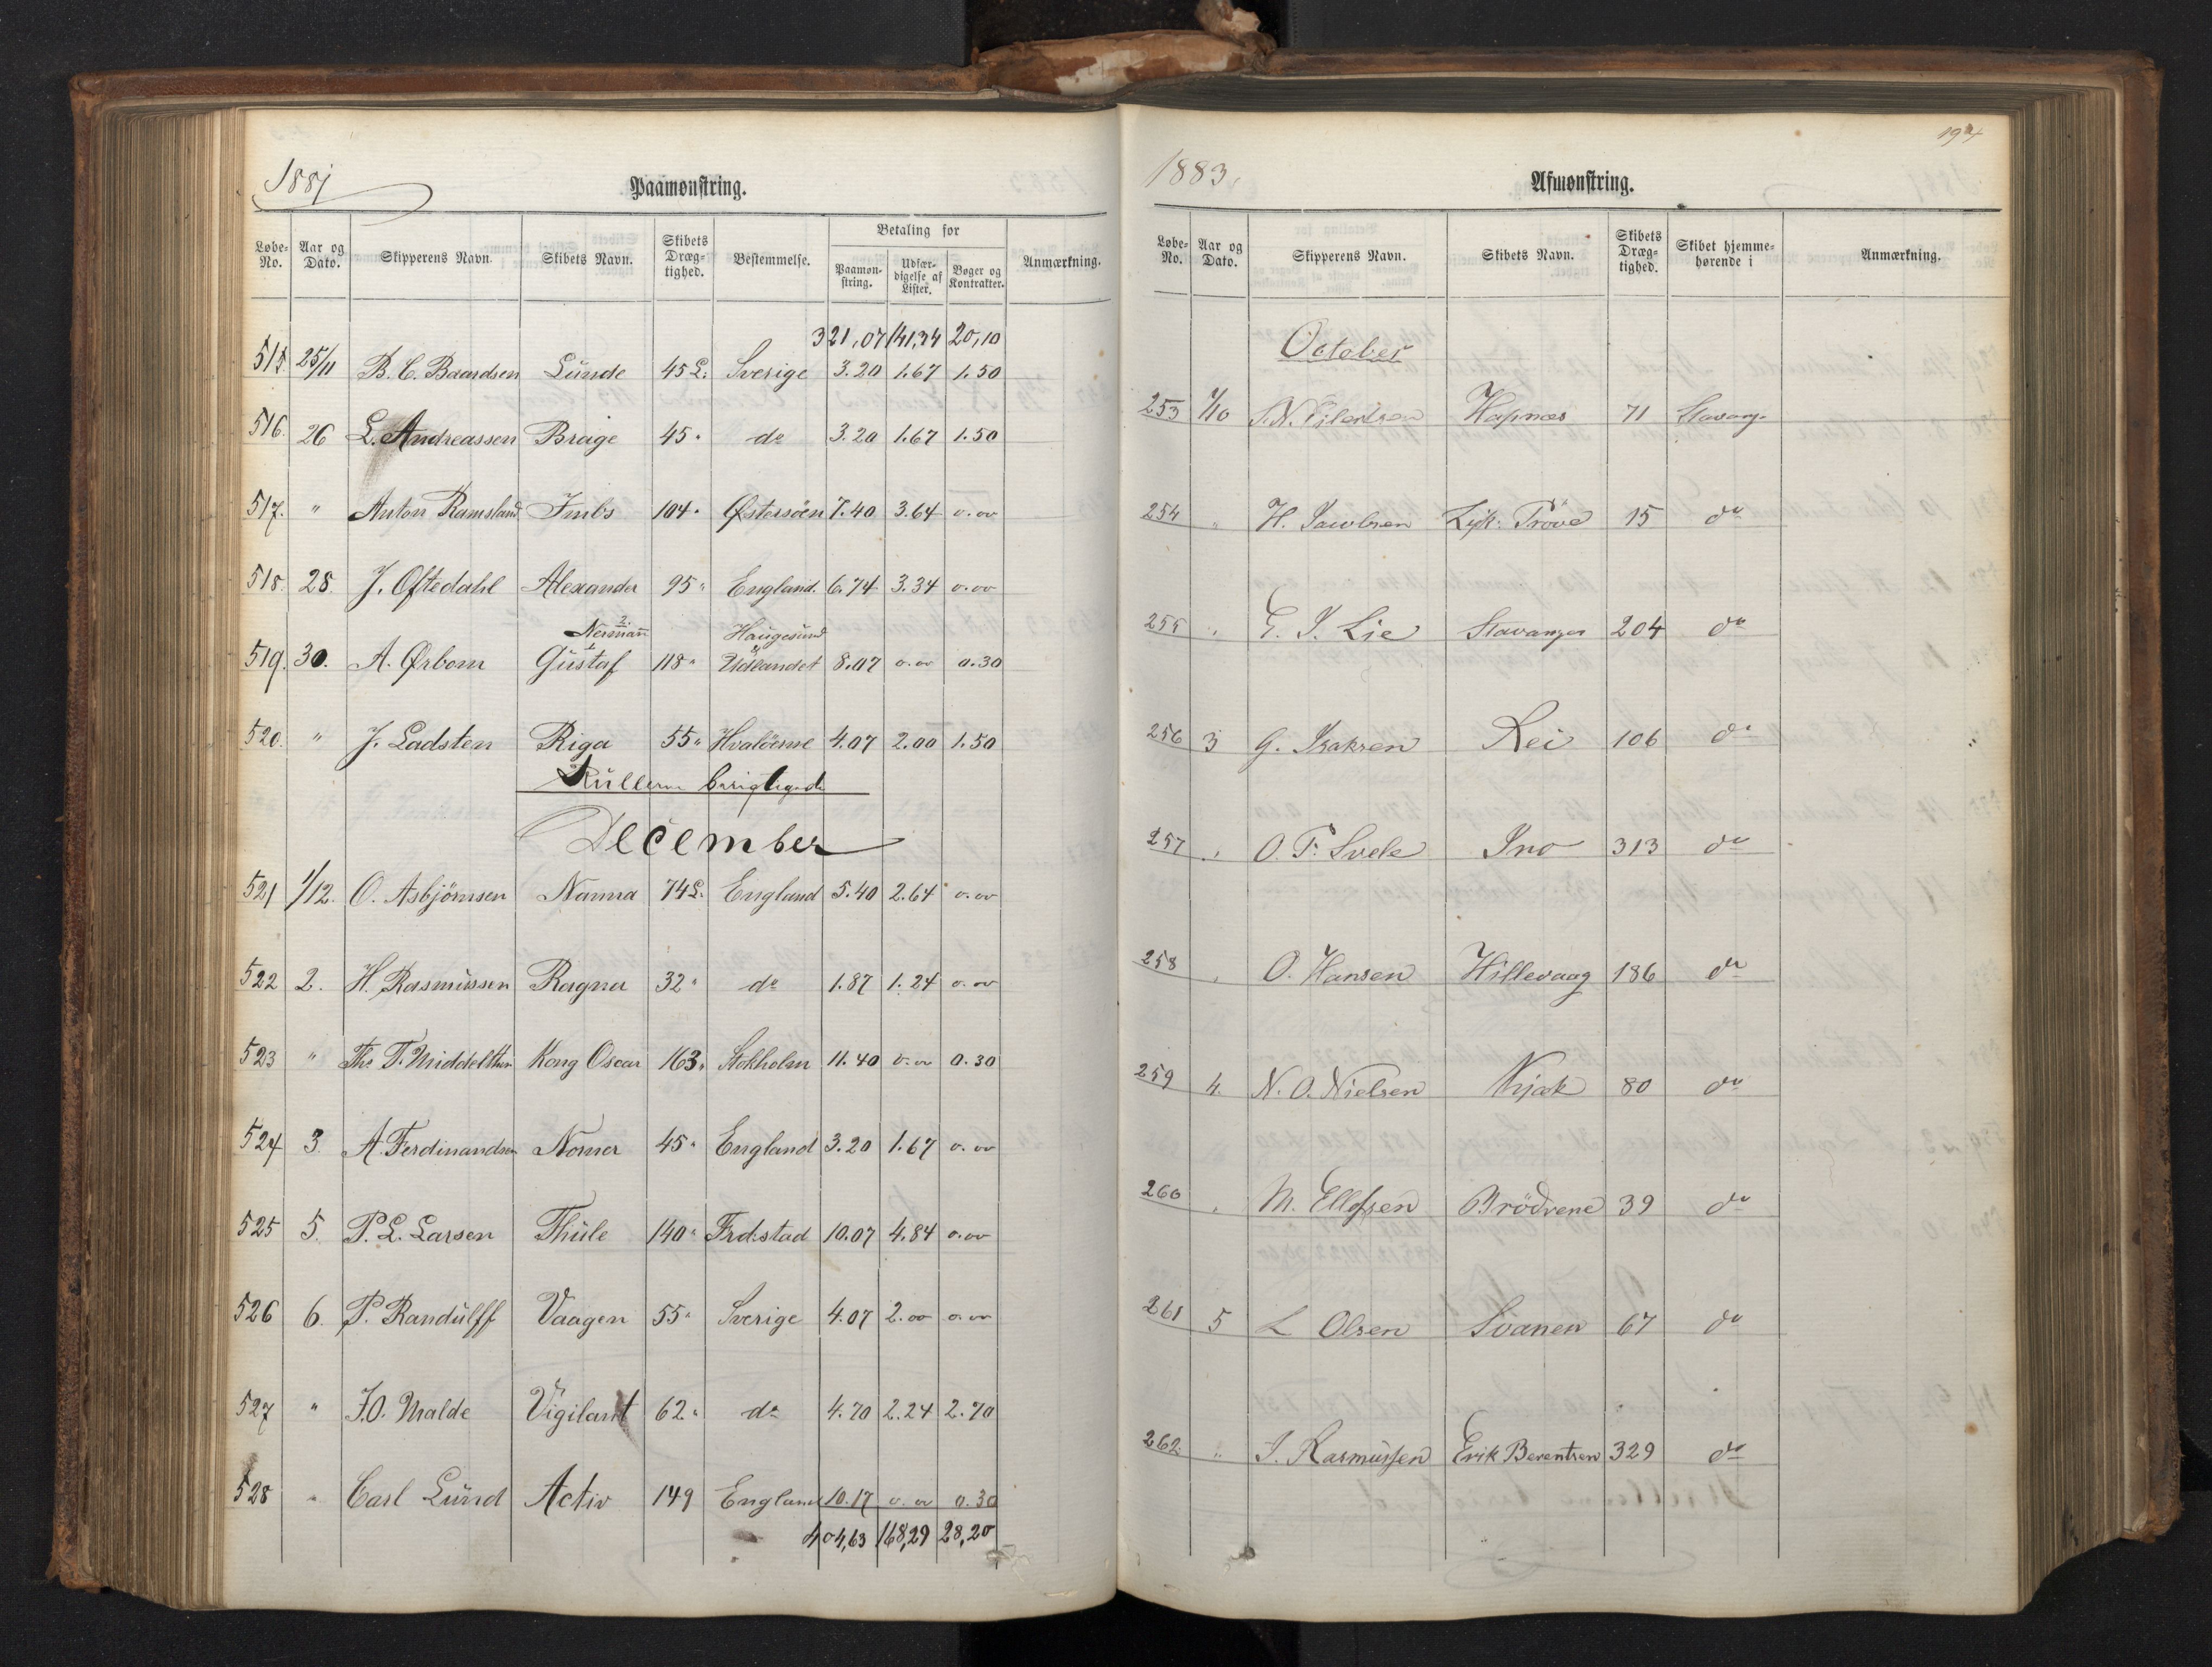 1881
Paamønstring.
Løbe-No. Aar og Dato. Skipperens Navn. Skibets Navn. Skibets Dræg-tighed. Bestemmelse. Betaling for Paamøn-string. Udfær-digelse af Lister. Bøger og Kontrakter. Anmærkning.
321,07 141,34 20,10
515. 25/11 B. C. Baardsen Lunde 45 L. Sverige 3.20 1.67 1.50
516. 26 L. Andreassen Brage 45 " do 3.20 1.67 1.50
517. " Anton Ramsland 104 " Østersöen 7.40 3.64 0.00
518. 28. J. Oftedahl Alexander 95 " England. 6.74 3.34 0.00
Haugesund
519. 30. A. Ørbom Gustaf 118 " Udlandet 8.07 0.00 0.30
520. " J. Ladsten Riga 55 " Hvalöerne 4.07 2.00 1.50
Rullerne berigtigede
December
521 1/12. O. Asbjörnsen Nanna 74 L. England 5.40 2.64 0.00
522 2. H. Rasmussen Ragna 32 " do 1.87 1.24 0.00
523 " Ths. T. Middelthon Kong Oscar 163 " Stokholm 11.40 0.00 0.30
524 3. A. Ferdinandsen Norner 45 " England 3.20 1.67 0.00
525 5. P. L. Larsen Thule 140 " Frdstad 10.07 4.84 0.00
526 6. P. Randulff Vaagen 55 " Sverige 4.07 2.00 0.00
527 " J. O. Malde Vigilant 62 " do 4.70 2.24 2.70
528 " Carl Lund Activ 149 England 10.17 0.00 0.30
404,63 168,29 28,20
194
1883.
Afmønstring.
Løbe-No. Aar og Dato. Skipperens Navn. Skibets Navn. Skibets Dræg-tighed. Skibet hjemme-hørende i Anmærkning.
October
253 1/10 N. Eilertsen Hapnæs 71 Stavang.
254 " H. Jacobsen Lyk: Pröve 15 do
255 " G. J. Lie Stavanger 204 do
256 3 G. Isaksen Rei 106 do
257 " O. T. Svele Ino 313 do
258 " O. Hansen Hillevaag 186 do
259 4. N. O. Nielsen 80 do
260 " M. Ellefsen Brödrene 39 do
261 5 L Olsen Svanen 67 do
262. " J. Rasmussen Erik Berentsen 329 do